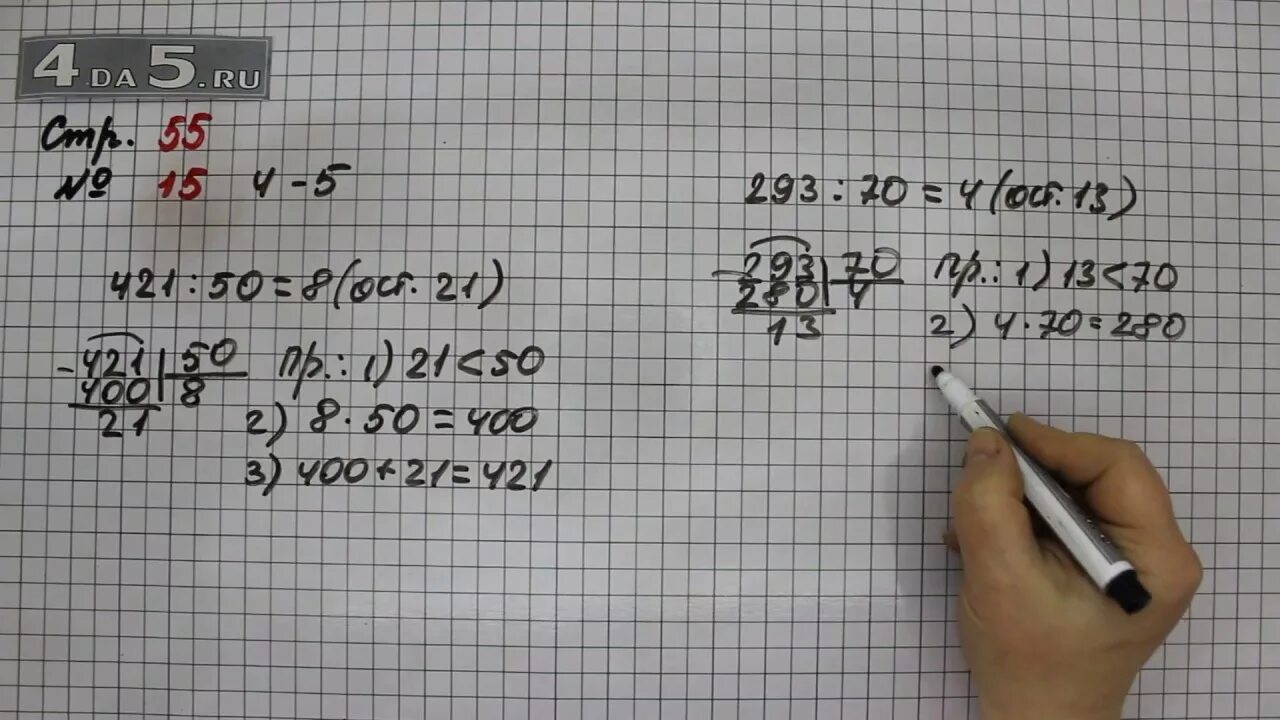 4.DA 5.RU
Стр. 55
№ 15 4-5
421 : 50 = 8 (ост. 21)
- 421 | 50
400 | 8
21
Пр.: 1) 21 < 50
2) 8 · 50 = 400
3) 400 + 21 = 421
293 : 70 = 4 (ост. 13)
- 293 | 70
280 | 4
13
Пр.: 1) 13 < 70
2) 4 · 70 = 280